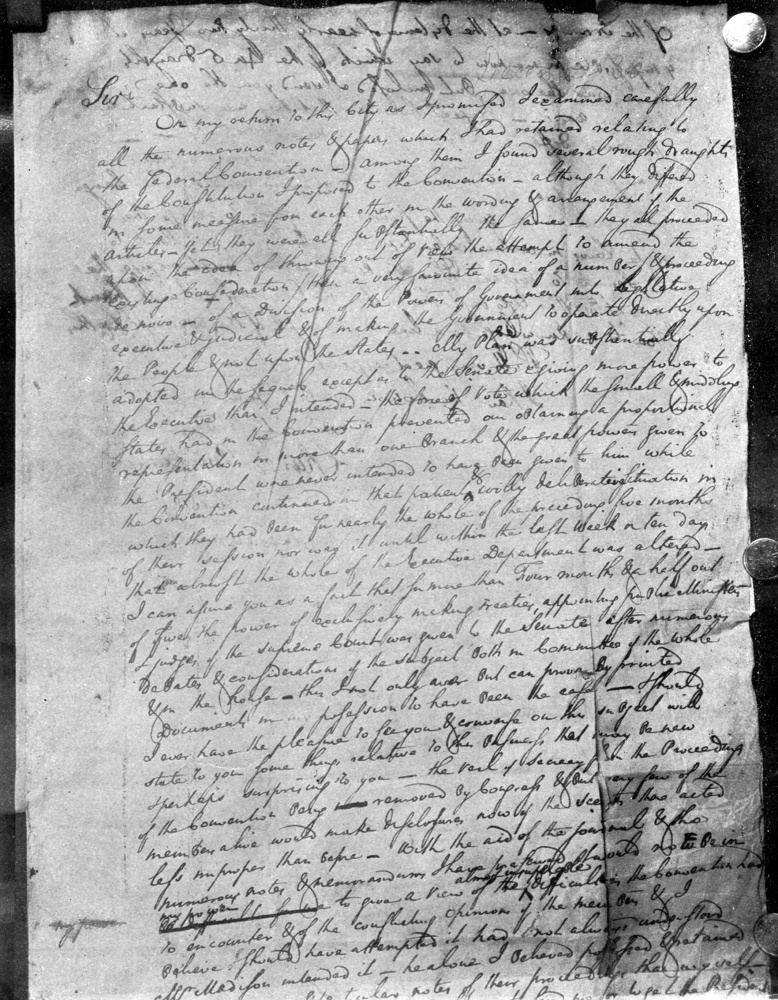 Sir
On my return to this City as I promised I examined carefully
all the numerous notes & papers which I had retained relating to
the federal Convention — among them I found several rough draughts
of the Constitution I proposed to the Convention — although they differed
in some measure from each other in the wording & arrangement of the
articles — yet they were all substantially the same — they all proceeded
upon the idea of throwing out of View the attempt to amend the
existing Confederation (then a very favourite idea of a number) & proceeding
de novo — of a Division of the Powers of Government into legislative
executive & judicial & of making the Government to operate directly upon
the People & not upon the States .. My Plan was substantially
adopted in the sequel except as to the Senate & giving more power to
the Executive than I intended — the force of Vote which the small & middling
States had in the Convention prevented our obtaining a proportional
representation in more than one Branch & the great powers given to
the President were never intended to have been given to him while
the Convention continued in that patient & coolly deliberative situation in
which they had been for nearly the whole of the preceding five months
of their session nor was it until within the last week or ten days
that almost the whole of the Executive Department was altered —
I can assure you as a fact that for more than Four months & a half out
of Five the power of exclusively making treaties, appointing public Ministers
& judges of the supreme Court was given to the Senate after numerous
Debates & considerations of the subject both in Committee of the whole
& in the house — this I not only aver but can prove by printed
Documents in my possession to have been the case — Should
I ever have the pleasure to see you & converse on this subject will
state to you some things relative to this business that may be new
& perhaps surprising to you — the veil of secrecy from the Proceedings
of the Convention being removed by Congress & but very few of the
members alive would make disclosures now of the secrets there acted
less improper than before — With the aid of the journal & the
numerous notes & memorandums I have preserved should now be in
my power to give a View of the almost insuperable difficulties the Convention had
to encounter & of the conflicting opinions of the members & I
believe I should have attempted it had I not always understood
Mr Madison intended it — he alone I believed possessed & retained